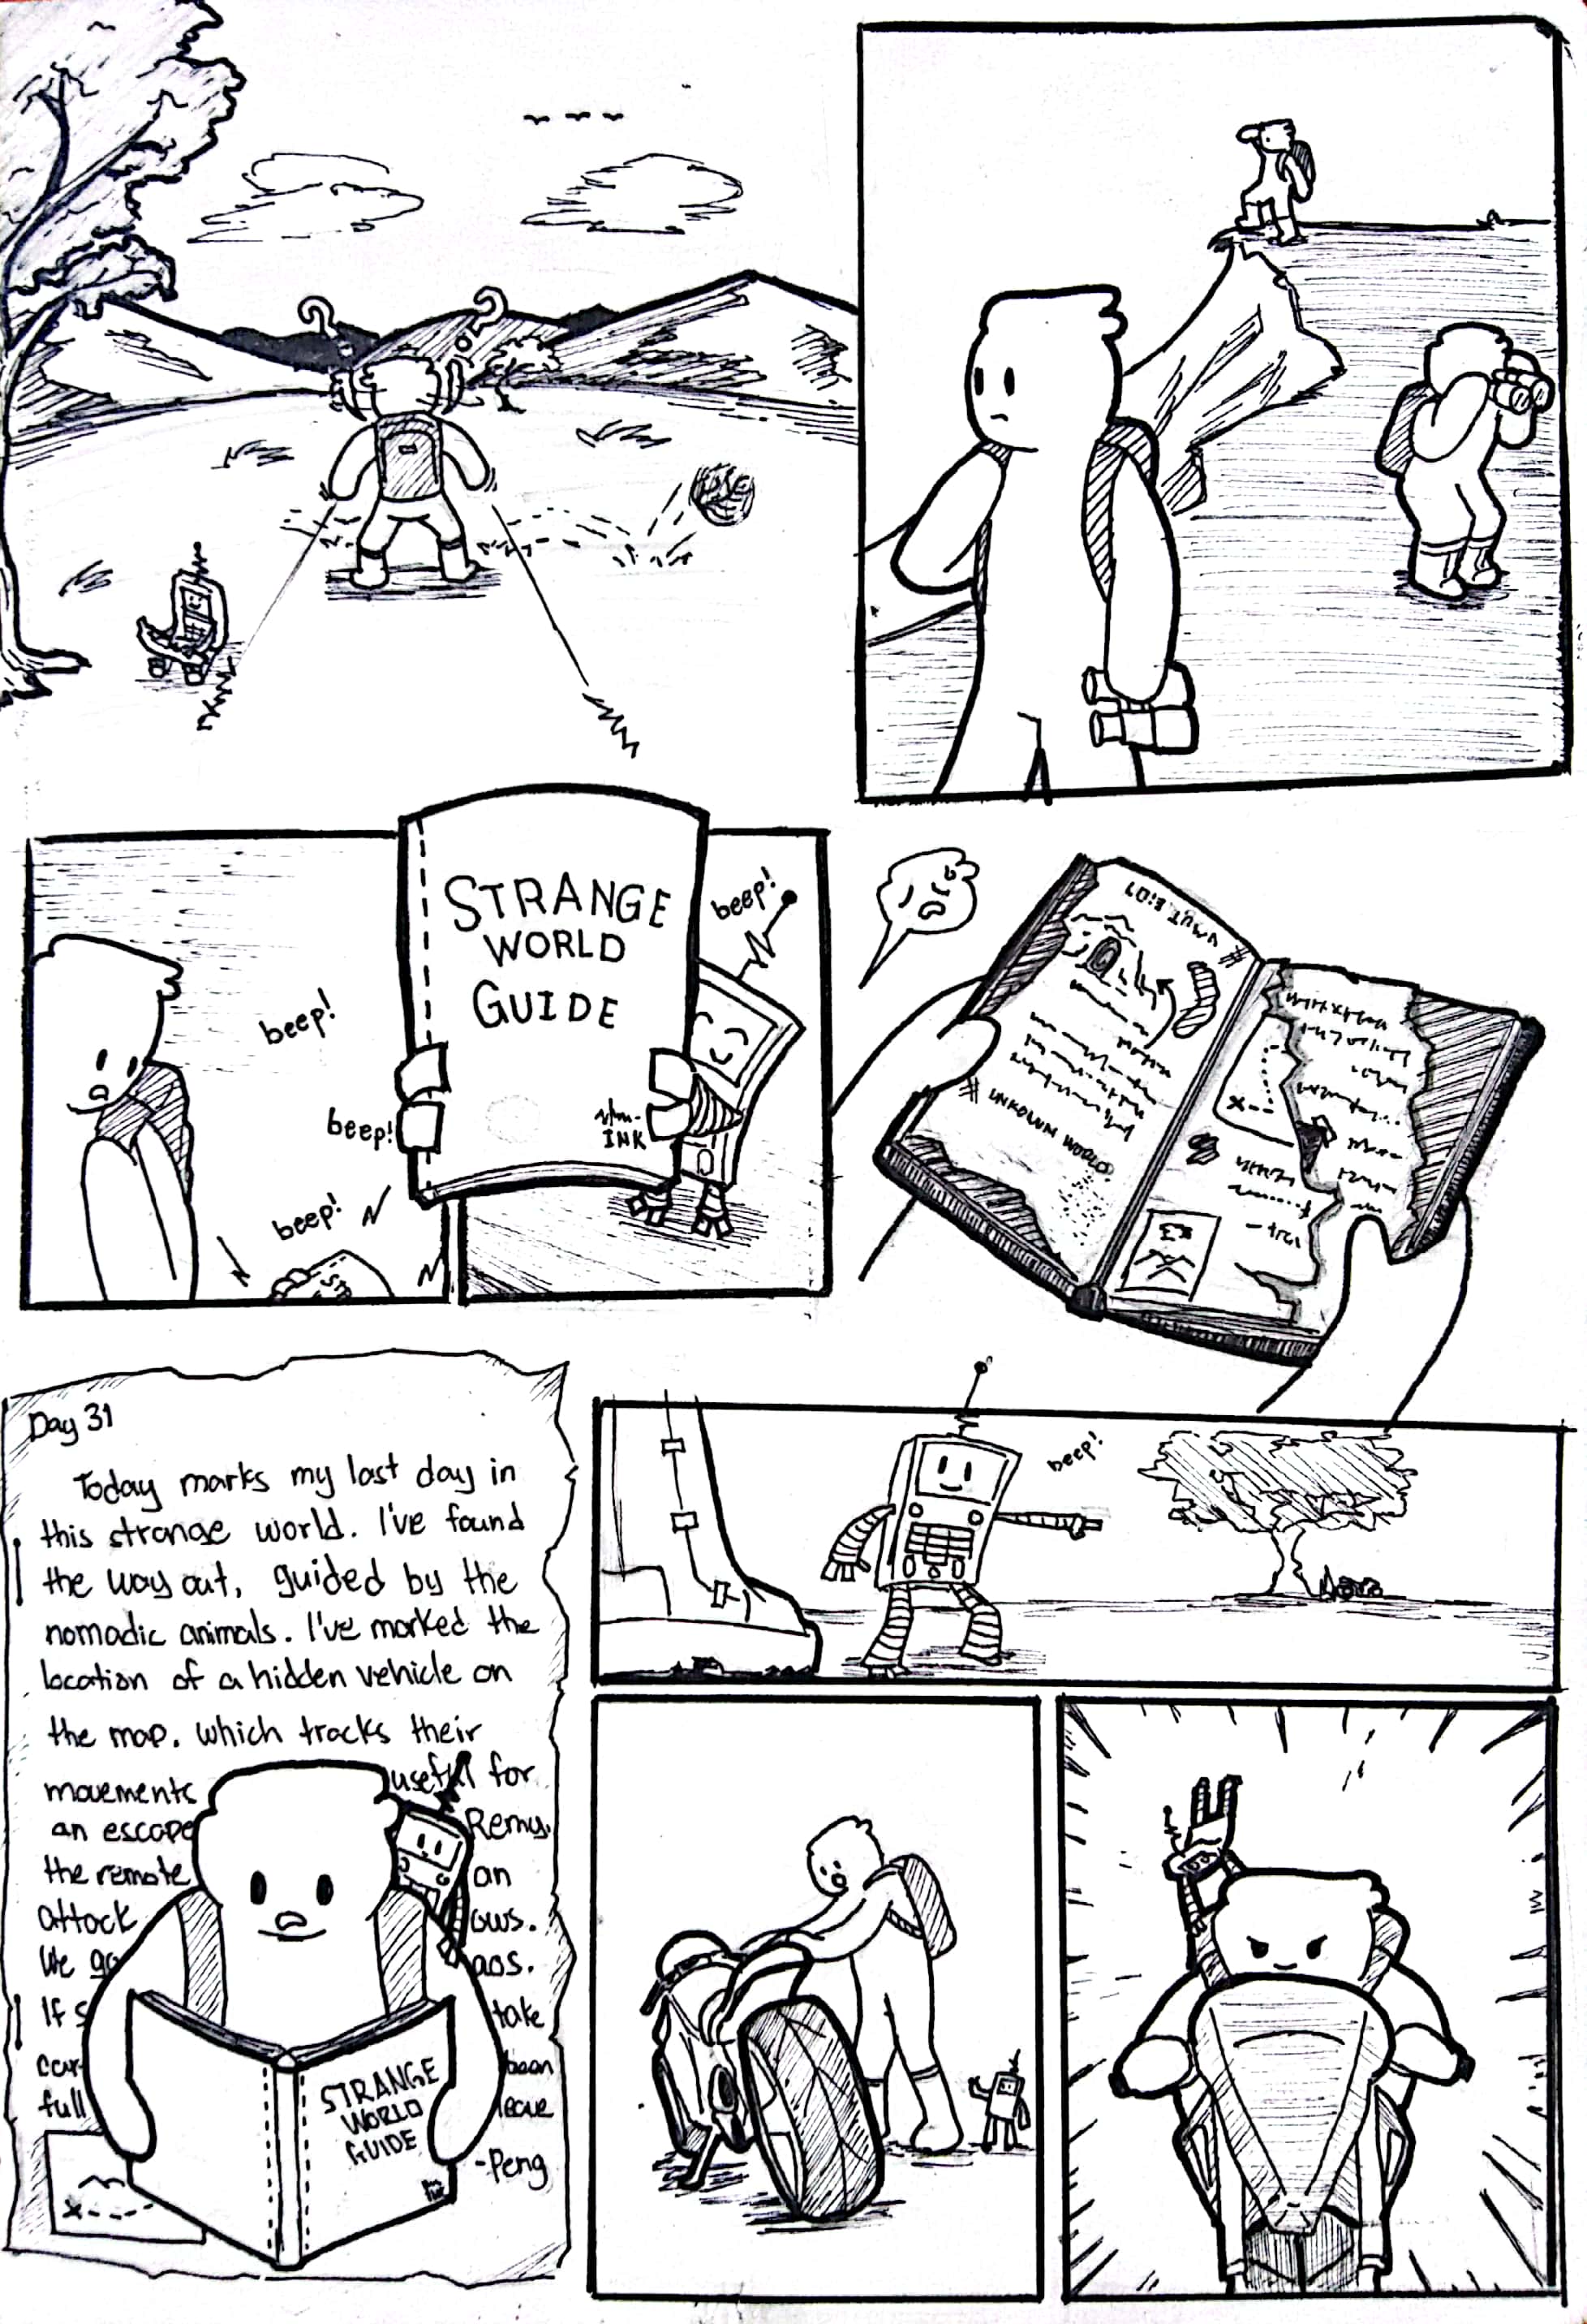 beep!
beep!
beep!
STRANGE
WORLD
GUIDE
INK
beep!
# UNKOWN WORLD
X
Day 31
Today marks my last day in
this strange world. I've found
the way out, guided by the
nomadic animals. I've marked the
location of a hidden vehicle on
the map. which tracks their
movements useful for
an escape Remy.
the remote an
attack ows.
We go aos.
If s take
car been
full leave
-Peng
X
STRANGE
WORLD
GUIDE
beep!